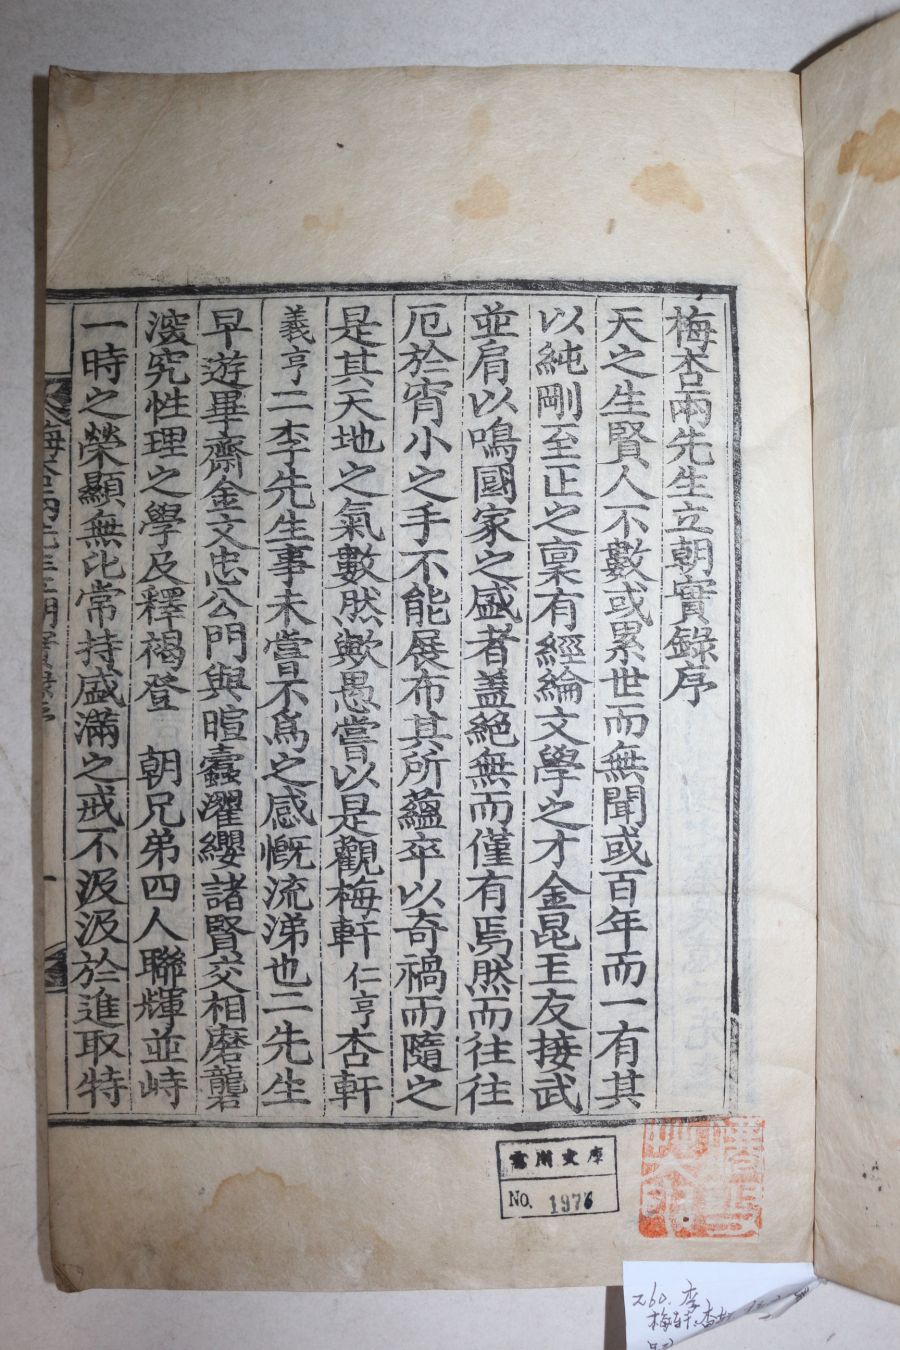 梅杏兩先生立朝實錄序
天之生賢人不數或累世而無聞或百年而一有其
以純剛至正之禀有經綸文學之才金昆玉友接武
並肩以鳴國家之盛者盖絕無而僅有焉然而往往
厄於宵小之手不能展布其所蘊卒以奇禍而隨之
是其天地之氣數然歟愚嘗以是觀梅軒仁亨杏軒
義亨二李先生事未嘗不爲之感慨流涕也二先生
早遊畢齋金文忠公門與暄蠹濯纓諸賢交相磨礱
濅究性理之學及釋褐登 朝兄弟四人聯輝並峙
一時之榮顯無比常持盛滿之戒不汲汲於進取特
梅杏兩先生立朝實錄序
一
文庫
No. 1976
260. 李
梅軒杏軒